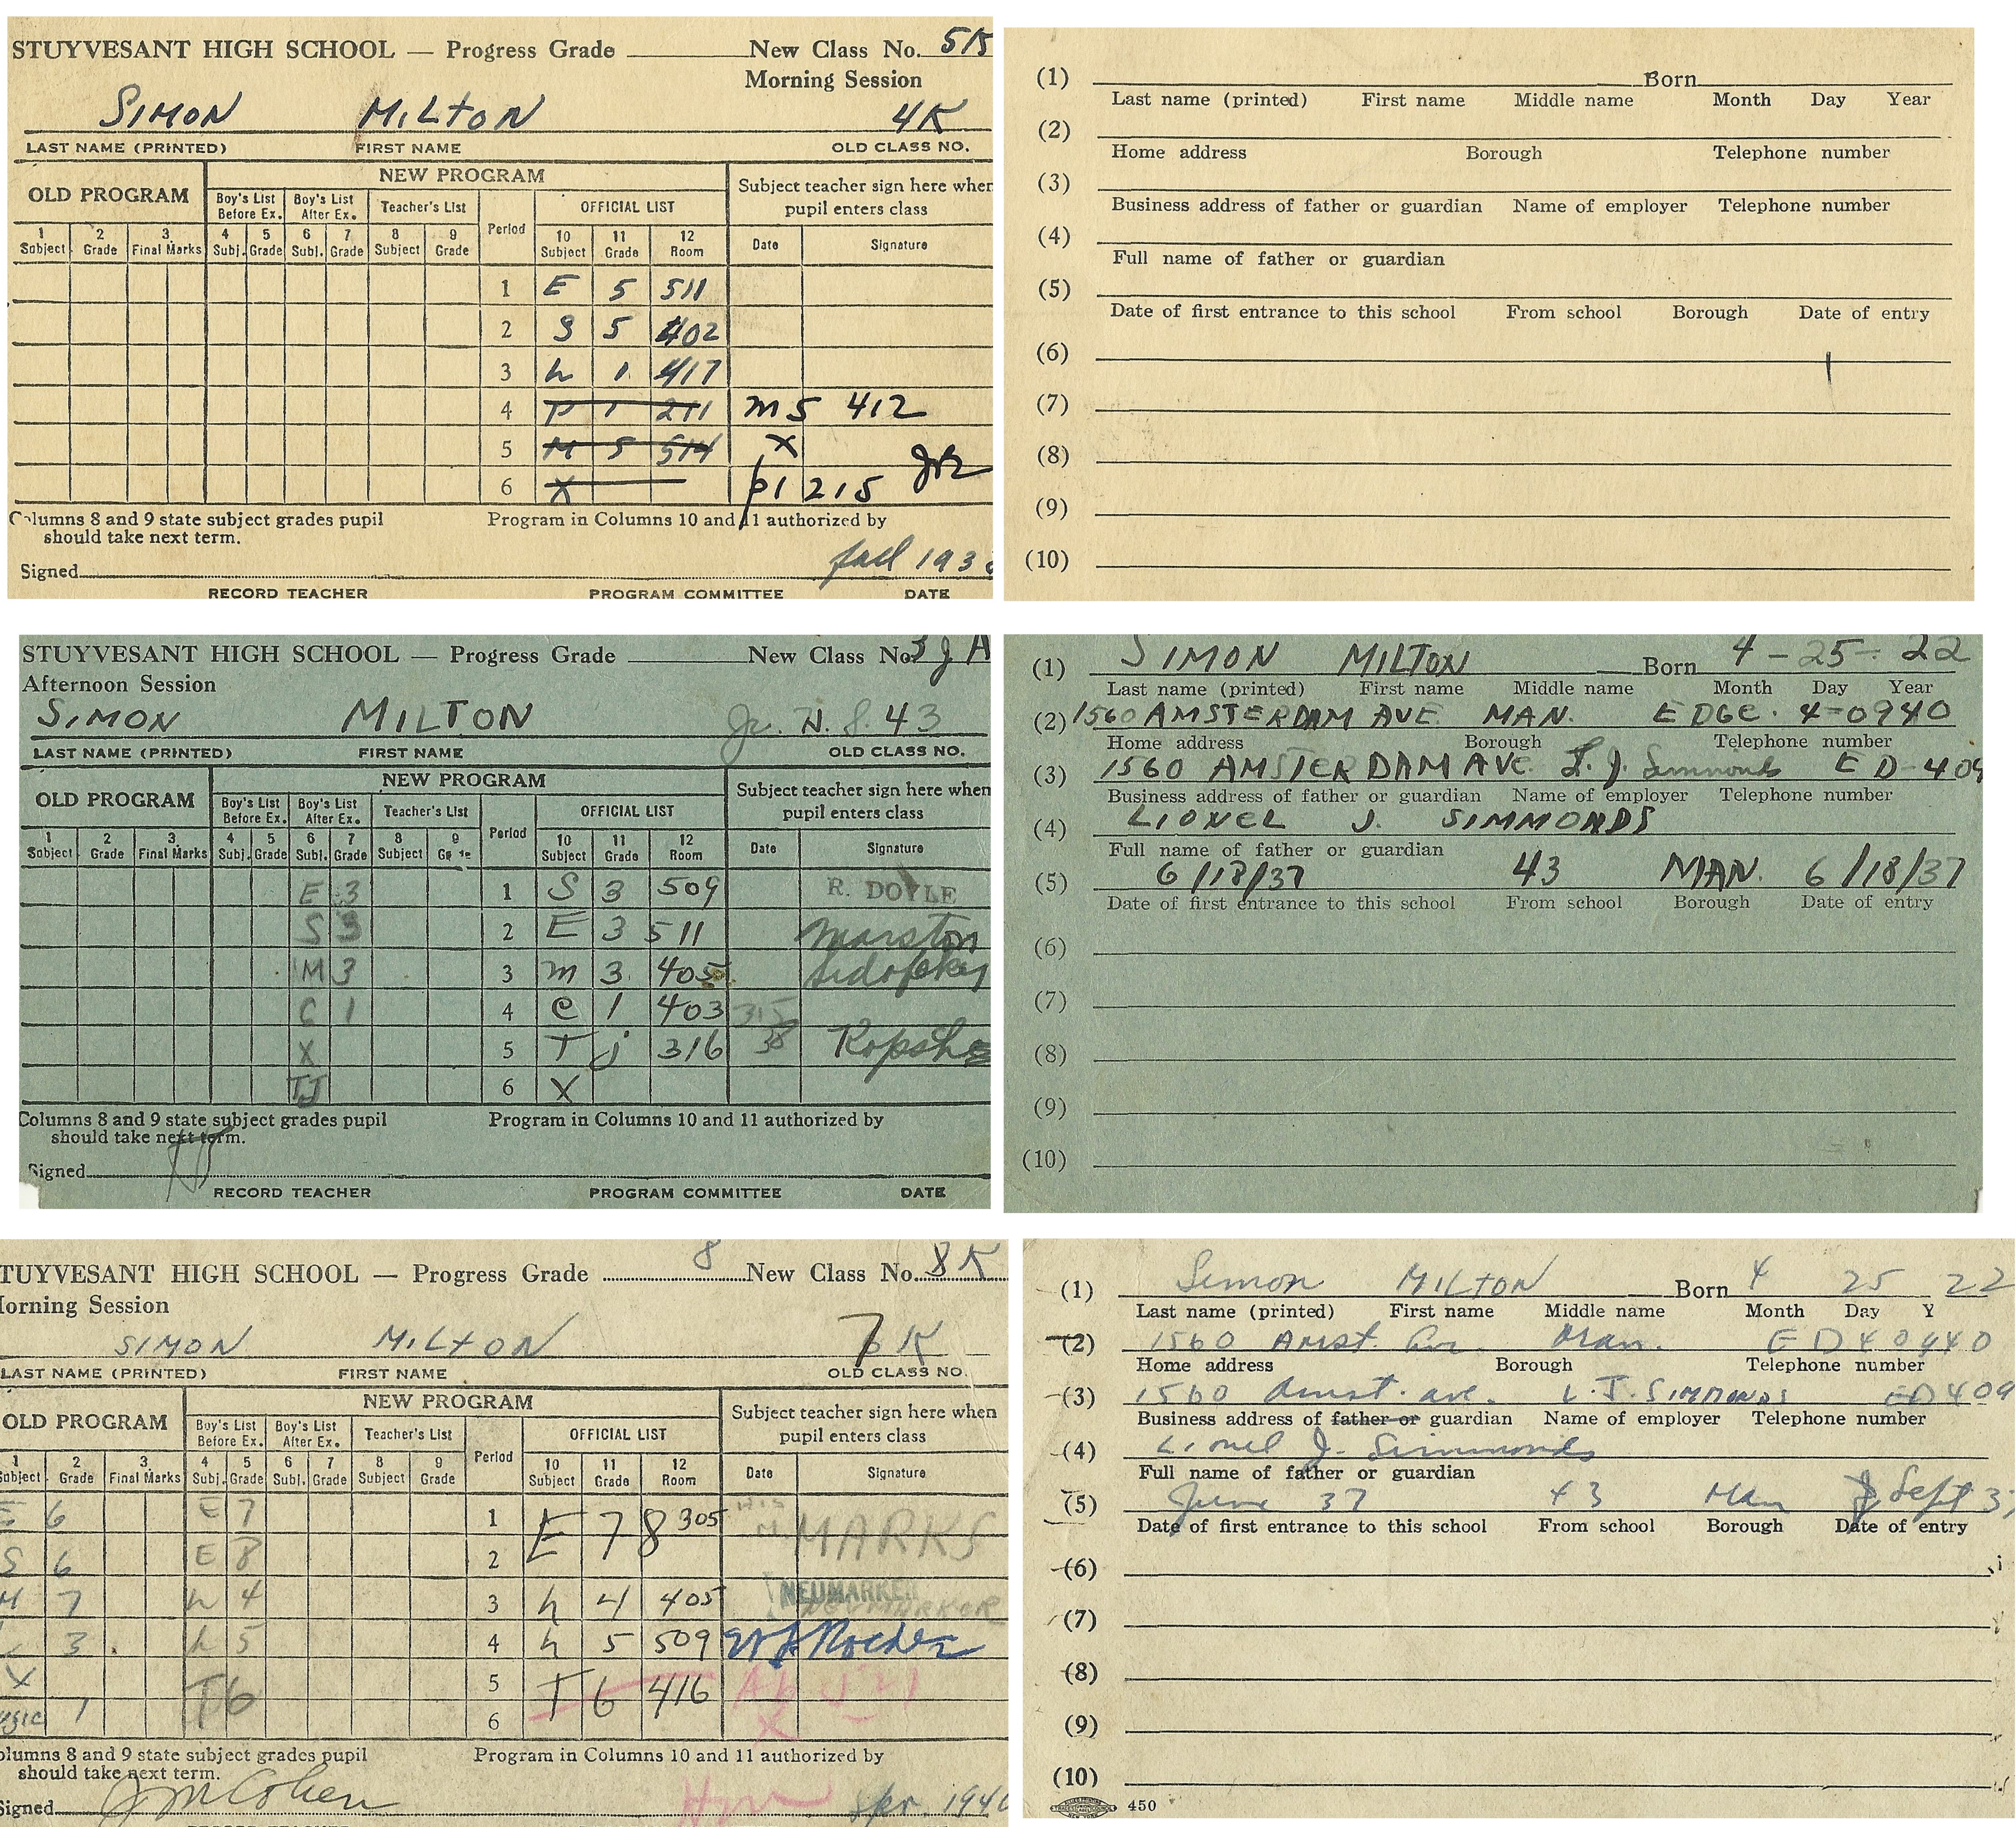 STUYVESANT HIGH SCHOOL — Progress Grade New Class No. 5K
Morning Session
SIMON MILTON 4K
LAST NAME (PRINTED) FIRST NAME OLD CLASS NO.
OLD PROGRAM NEW PROGRAM Subject teacher sign here when pupil enters class
Boy's List Before Ex. Boy's List After Ex. Teacher's List Period OFFICIAL LIST
1 Subject 2 Grade 3 Final Marks 4 Subj. 5 Grade 6 Subj. 7 Grade 8 Subject 9 Grade 10 Subject 11 Grade 12 Room Date Signature
1 E 5 511
2 S 5 402
3 h 1 417
4 P 1 211 M 5 412
5 M 5 514 X
6 X P1 215
Columns 8 and 9 state subject grades pupil should take next term. Program in Columns 10 and 11 authorized by
Signed fall 193
RECORD TEACHER PROGRAM COMMITTEE DATE
(1) Born
Last name (printed) First name Middle name Month Day Year
(2)
Home address Borough Telephone number
(3)
Business address of father or guardian Name of employer Telephone number
(4)
Full name of father or guardian
(5)
Date of first entrance to this school From school Borough Date of entry
(6)
(7)
(8)
(9)
(10)
STUYVESANT HIGH SCHOOL — Progress Grade New Class No. 3 J A
Afternoon Session
SIMON MILTON Jr. H. S. 43
LAST NAME (PRINTED) FIRST NAME OLD CLASS NO.
OLD PROGRAM NEW PROGRAM Subject teacher sign here when pupil enters class
Boy's List Before Ex. Boy's List After Ex. Teacher's List Period OFFICIAL LIST
1 Subject 2 Grade 3 Final Marks 4 Subj. 5 Grade 6 Subj. 7 Grade 8 Subject 9 10 Subject 11 Grade 12 Room Date Signature
E 3 1 S 3 509 R. DOYLE
S 3 2 E 3 511 Marston
M 3 3 m 3 405
C 1 4 C 1 403 315
X 5 T j 316
TJ 6 X
Columns 8 and 9 state subject grades pupil should take next term. Program in Columns 10 and 11 authorized by
Signed
RECORD TEACHER PROGRAM COMMITTEE DATE
(1) SIMON MILTON Born 4-25-22
Last name (printed) First name Middle name Month Day Year
(2) 1560 AMSTERDAM AVE. MAN. EDGE. 4-0940
Home address Borough Telephone number
(3) 1560 AMSTERDAM AVE. L. J. Simmonds ED-409
Business address of father or guardian Name of employer Telephone number
(4) LIONEL J. SIMMONDS
Full name of father or guardian
(5) 6/18/37 43 MAN. 6/18/37
Date of first entrance to this school From school Borough Date of entry
(6)
(7)
(8)
(9)
(10)
TUYVESANT HIGH SCHOOL — Progress Grade 8 New Class No. 8K
orning Session
SIMON MILTON 7K
LAST NAME (PRINTED) FIRST NAME OLD CLASS NO.
OLD PROGRAM NEW PROGRAM Subject teacher sign here when pupil enters class
Boy's List Before Ex. Boy's List After Ex. Teacher's List Period OFFICIAL LIST
1 ubject 2 Grade 3 Final Marks 4 Subj. 5 Grade 6 Subj. 7 Grade 8 Subject 9 Grade 10 Subject 11 Grade 12 Room Date Signature
E 6 E 7 1 E 7 8 305 MARKS
S 6 E 8 2
M 7 h 4 3 h 4 405 NEUMARKER
3 h 5 4 h 5 509
X T 6 5 T 6 416
usic 1 6 X
olumns 8 and 9 state subject grades pupil should take next term. Program in Columns 10 and 11 authorized by
Signed J M Cohen Spr. 1940
(1) Simon MILTON Born 4 25 22
Last name (printed) First name Middle name Month Day Y
(2) 1560 Amst. Ave. Man. ED 4 0940
Home address Borough Telephone number
(3) 1560 Amst. ave. L. J. SIMMONDS ED 409
Business address of father or guardian Name of employer Telephone number
(4) Lionel J. Simmonds
Full name of father or guardian
(5) June 37 43 Man Sept 3
Date of first entrance to this school From school Borough Date of entry
(6)
(7)
(8)
(9)
(10)
450